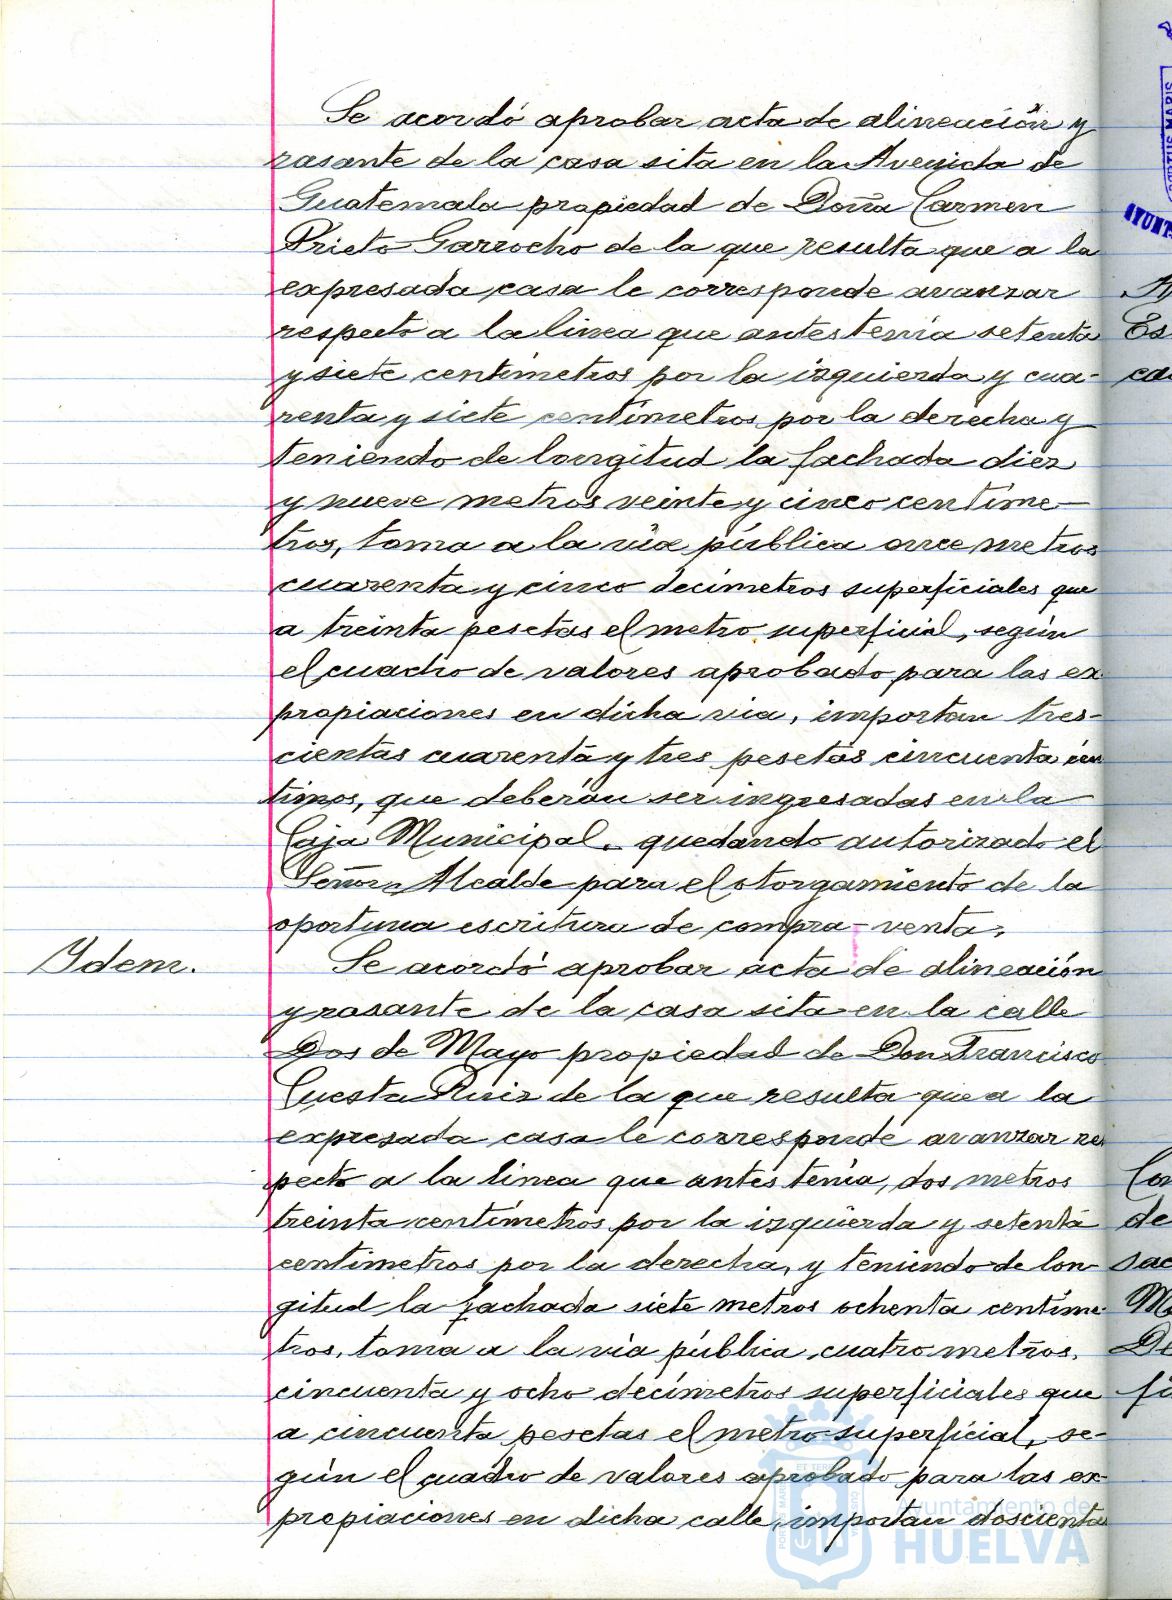 Se acordó aprobar acta de alineación y
rasante de la casa sita en la Avenida de
Guatemala propiedad de Doña Carmen
Prieto Garrocho de la que resulta que a la
expresada casa le corresponde avanzar
respecto a la linea que antes tenía setenta
y siete centímetros por la izquierda y cua-
renta y siete centímetros por la derecha y
teniendo de longitud la fachada diez
y nueve metros veinte y cinco centíme-
tros, toma a la via pública once metros
cuarenta y cinco decímetros superficiales que
a treinta pesetas el metro superficial, según
el cuadro de valores aprobado para las ex
propiaciones en dicha via, importan tres-
cientas cuarenta y tres pesetas cincuenta cén
timos, que deberán ser ingresadas en la
Caja Municipal. quedando autorizado el
Señor Alcalde para el otorgamiento de la
oportuna escritura de compra-venta.
Idem.
Se acordó aprobar acta de alineación
y rasante de la casa sita en la calle
Dos de Mayo propiedad de Don Francisco
Cuesta Ruiz de la que resulta que a la
expresada casa le corresponde avanzar res
pecto a la linea que antes tenía, dos metros
treinta centímetros por la izquierda y setenta
centímetros por la derecha, y teniendo de lon
gitud la fachada siete metros ochenta centíme
tros, toma a la via pública cuatro metros,
cincuenta y ocho decímetros superficiales que
a cincuenta pesetas el metro superficial, se-
gún el cuadro de valores aprobado para las ex-
propiaciones en dicha calle, importan doscientas
Ayuntamiento de
HUELVA